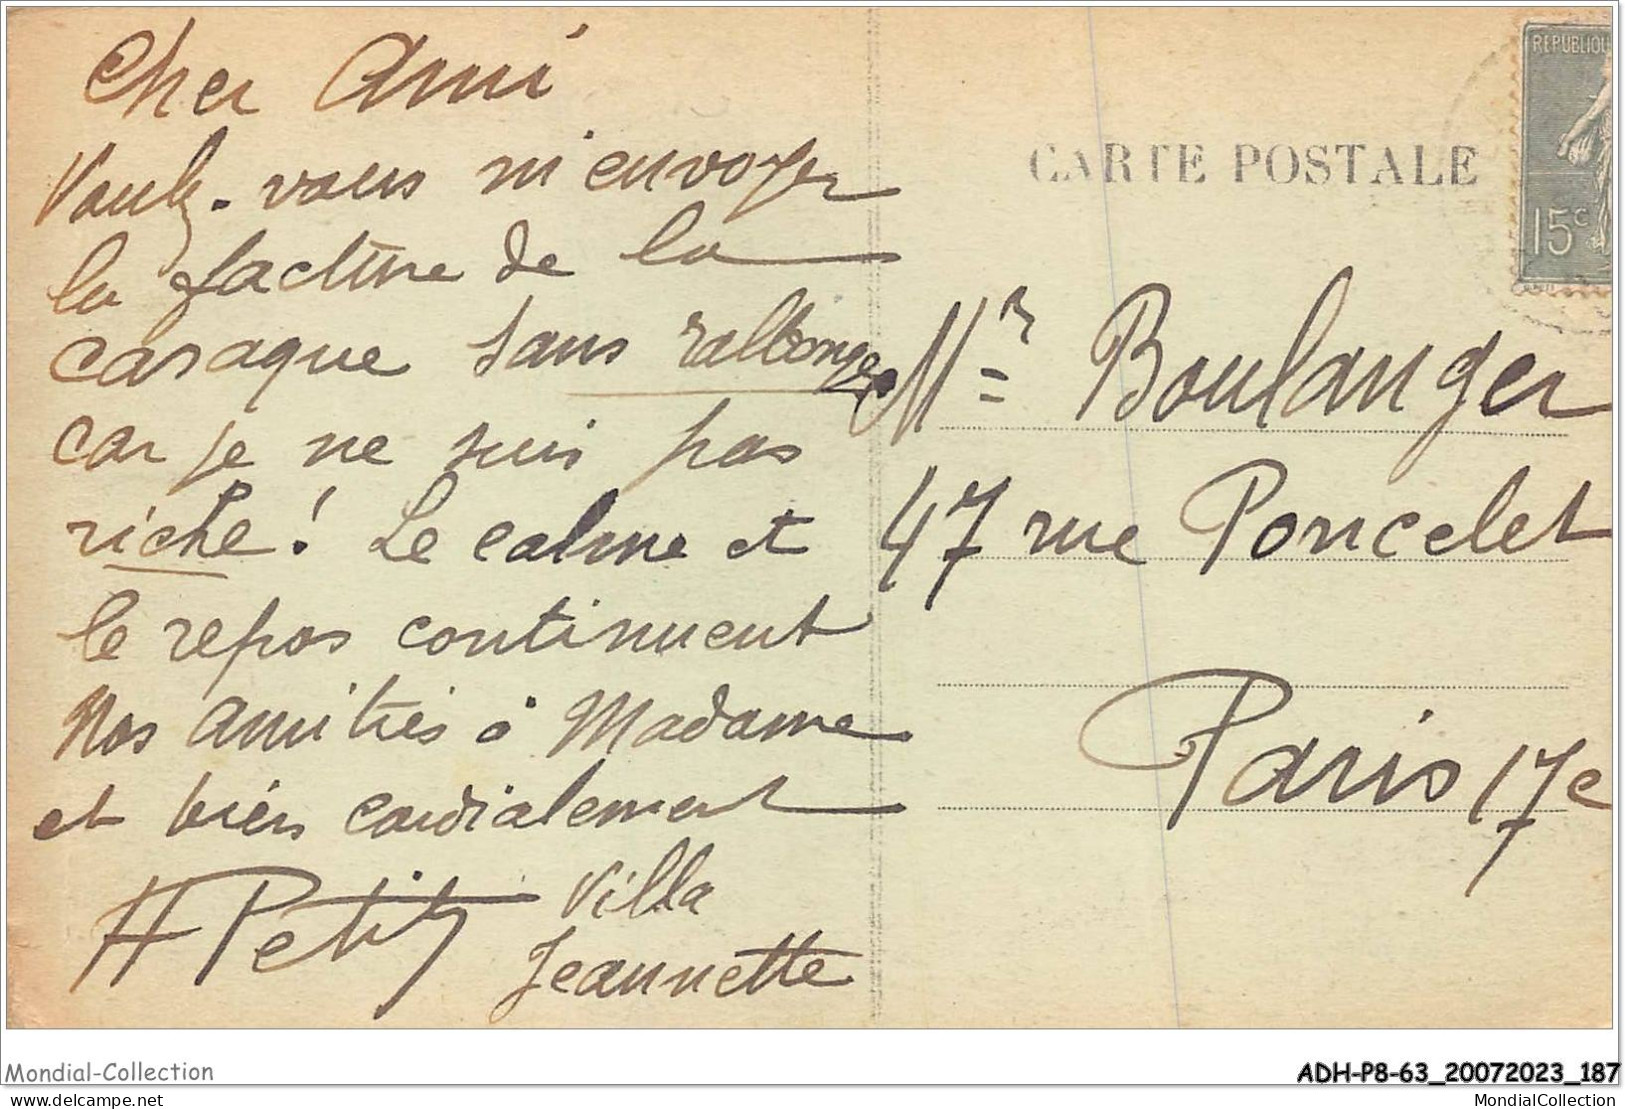 Cher Ami
Voulez-vous m'envoyer
la facture de la
casaque sans rallonge
car je ne suis pas
riche ! Le calme et
le repos continuent
Nos amitiés à Madame
et bien cordialement
H Petit
Villa
Jeannette
CARTE POSTALE
REPUBLIQU
15c
Mr Boulanger
47 rue Poncelet
Paris 17e
Mondial-Collection
ADH-P8-63_20072023_187
delcampe.net
MondialCollection